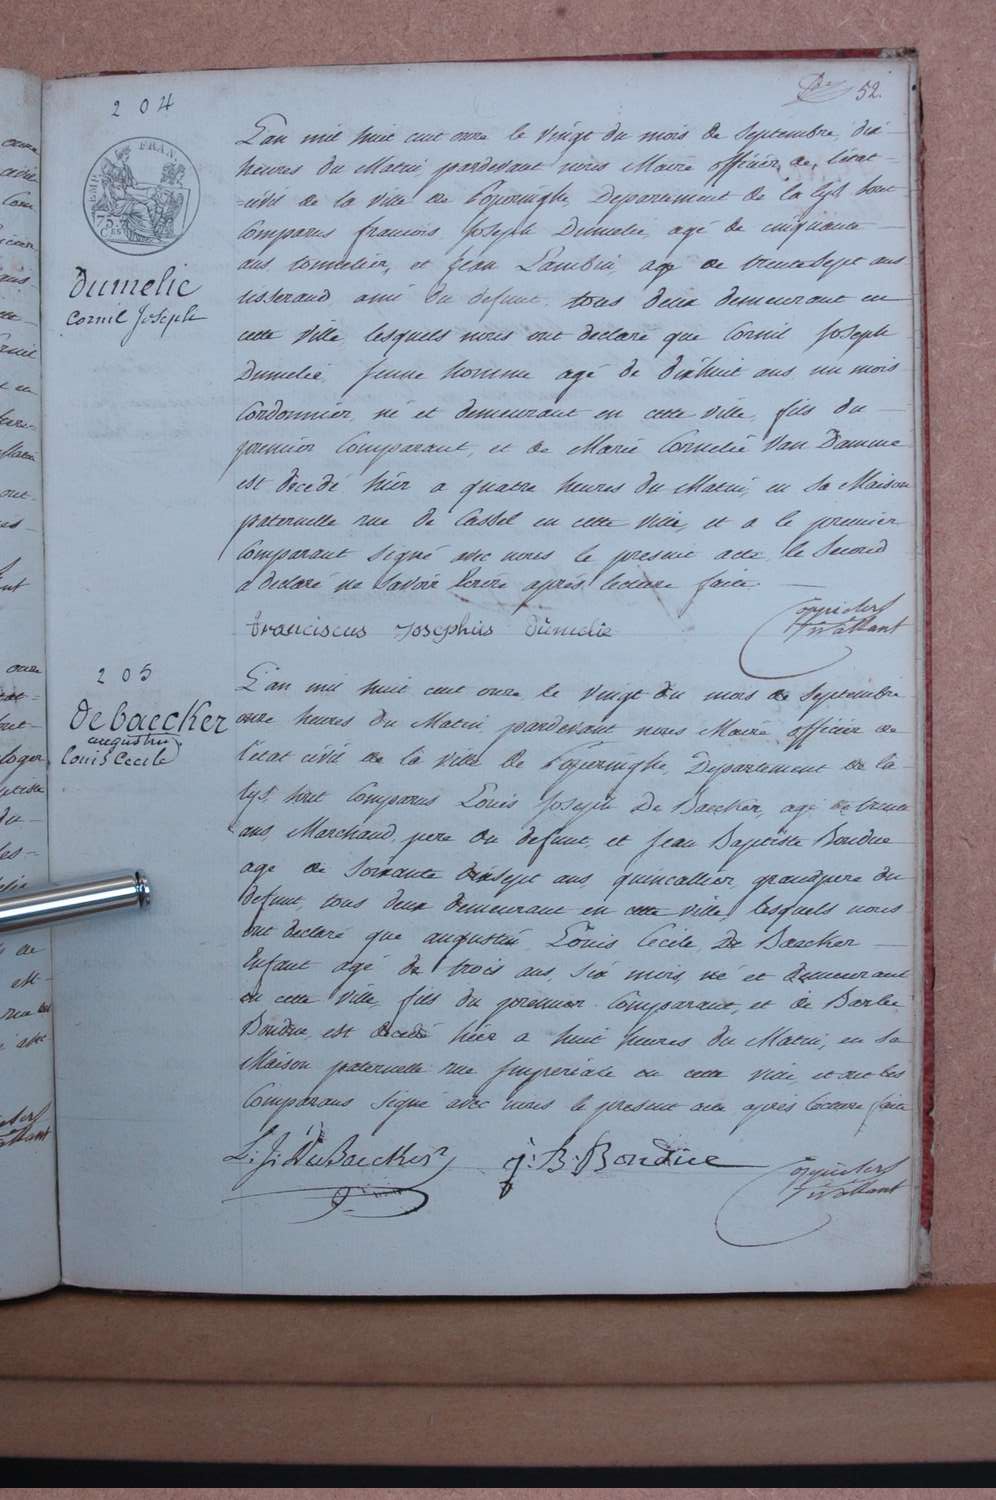 52.
204
EMP. FRAN.
75
Ces
Dumelie
Cornil Joseph
L'an mil huit cent onze le vingt du mois de Septembre, dix
heures du Matin pardevant nous Maire officier de l'état
=civil de la ville de Poperinghe, Departement de la lys sont
Comparus francois Joseph Dumelie, agé de cinquante
ans, tonnelier, et Jean Lambin, agé de trente sept ans
tisserand ami du defunt, tous deux demeurant en
cette ville lesquels nous ont declaré que Cornil Joseph
Dumelie, Jeune homme agé de dixhuit ans, un mois
Cordonnier, né et demeurant en cette ville, fils du
premier Comparant, et de Marie Cornelie Van Damme
est décedé hier a quatre heures du Matin, en sa Maison
paternelle rue de Cassel en cette ville, et a le premier
Comparant signé avec nous le present acte, le second
a declaré ne savoir écrire après lecture faite.
Franciscus Josephus Dumelie
205
De baecker
augustin
Louis Cecile
L'an mil huit cent onze le vingt du mois de Septembre
onze heures du Matin, pardevant nous Maire officier de
l'état civil de la ville de Poperinghe, Departement de la
lys, sont Comparus Louis Joseph De Baecker, agé de trente
ans, Marchand, pere du defunt, et Jean Baptiste Bondue
agé de soixante dixsept ans, quincallier, grandpere du
defunt, tous deux demeurant en cette ville, lesquels nous
ont declaré que augustin Louis Cecile De Baecker
Enfant agé de trois ans, six mois, né et demeurant
en cette ville, fils du premier Comparant, et de Barbe
Bondue, est decedé hier a huit heures du Matin, en sa
Maison paternelle rue Imperiale en cette ville, et ont les
Comparans signé avec nous le present acte après lecture faite
L: J: DeBaecker
j: B: Bondue